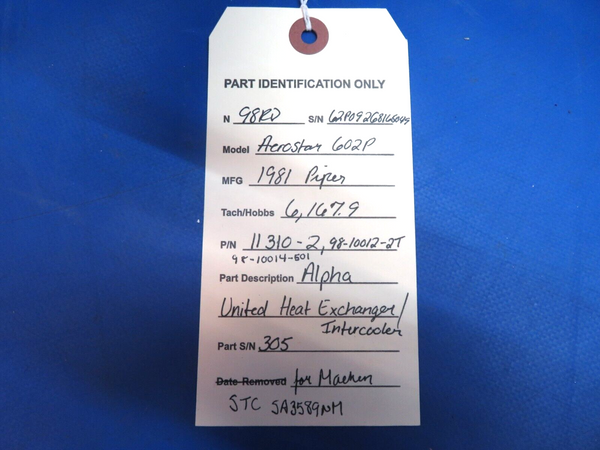 PART IDENTIFICATION ONLY
N 98RD S/N 62P09268165049
Model Aerostar 602P
MFG 1981 Piper
Tach/Hobbs 6,167.9
P/N 11310-2, 98-10012-2T
98-10014-501
Part Description Alpha
United Heat Exchanger/
Intercooler
Part S/N 305
Date Removed for Machen
STC SA3589NM